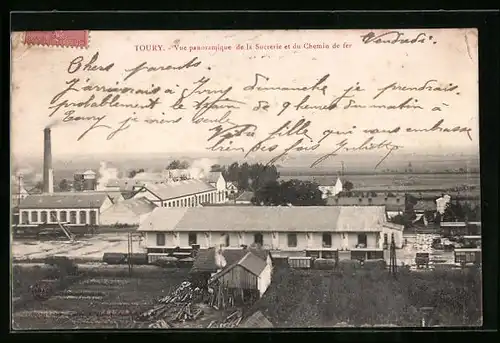 TOURY. - Vue panoramique de la Sucrerie et du Chemin de fer
Vendredi
Chers parents.
J'arriverai à Ivry dimanche je prendrai
probablement le train de 9 heures du matin à
Toury je viens seule
Votre fille qui vous embrasse
bien des fois Juliette